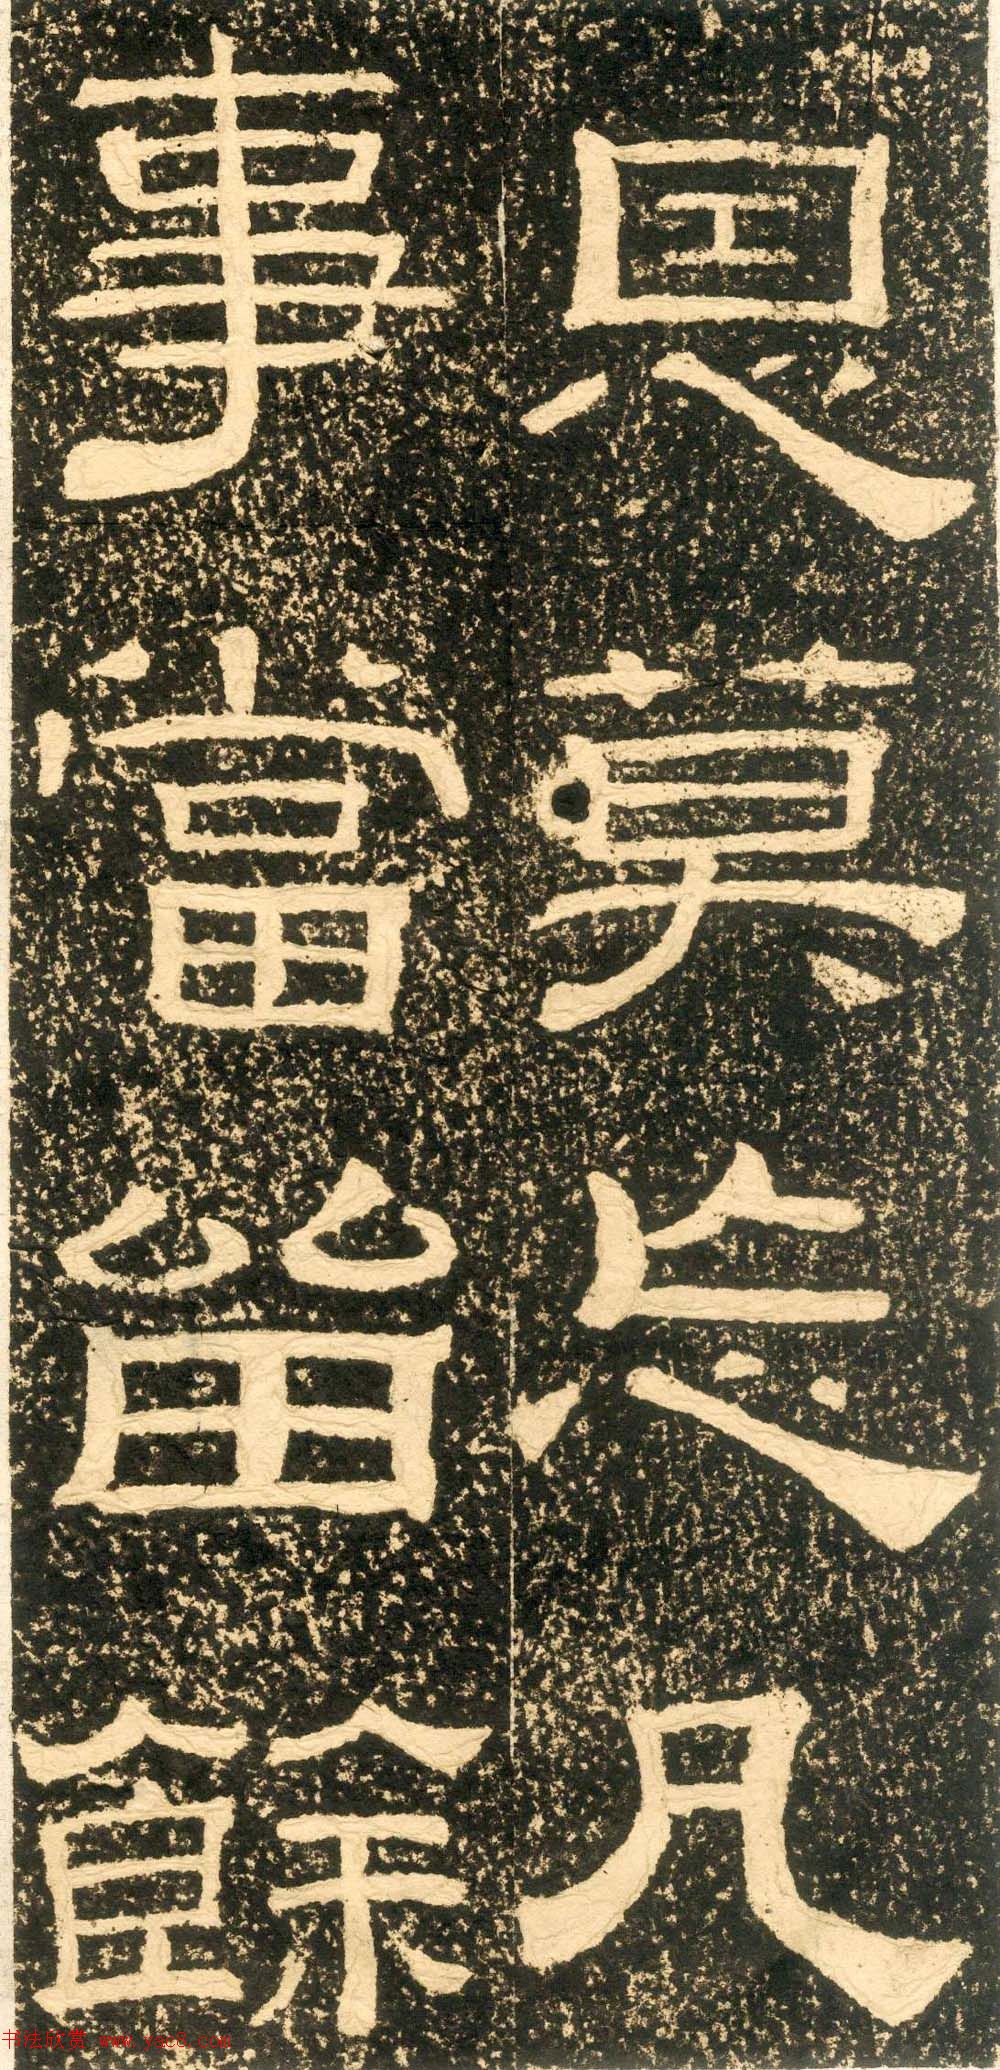 恩莫忘凡
事當留餘
书法欣赏 www.yac8.com